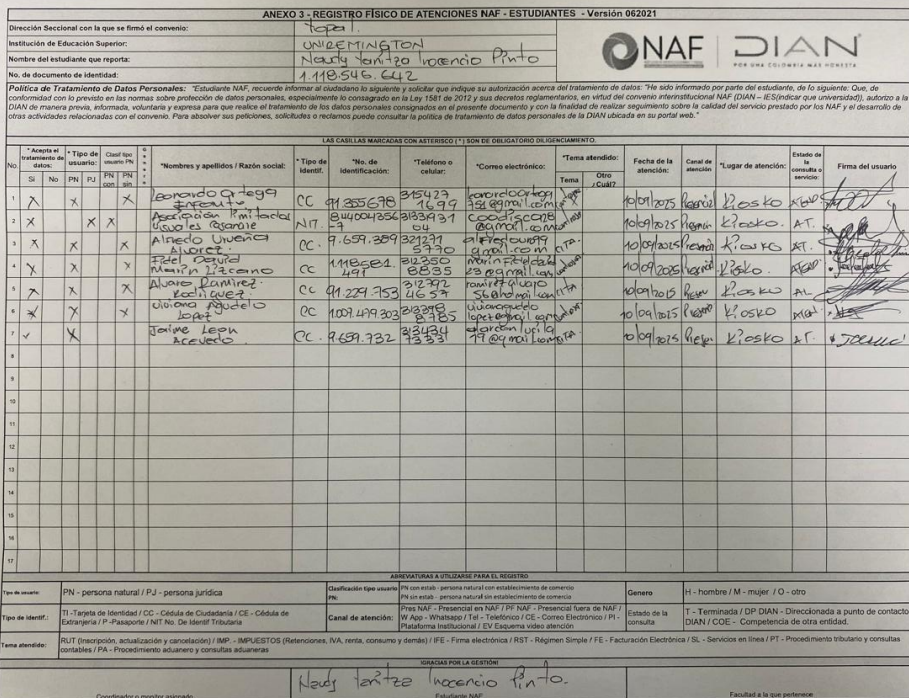 ANEXO 3 - REGISTRO FÍSICO DE ATENCIONES NAF - ESTUDIANTES - Versión 062021
Dirección Seccional con la que se firmó el convenio: Yopal.
Institución de Educación Superior: UNIREMINGTON
Nombre del estudiante que reporta: Naudy Yaritza Inocencio Pinto
No. de documento de identidad: 1.118.546.642
NAF DIAN
POR UNA COLOMBIA MÁS HONESTA
Política de Tratamiento de Datos Personales: "Estudiante NAF, recuerde informar al ciudadano lo siguiente y solicitar que indique su autorización acerca del tratamiento de datos: "He sido informado por parte del estudiante, de lo siguiente: Que, de
conformidad con lo previsto en las normas sobre protección de datos personales, especialmente lo consagrado en la Ley 1581 de 2012 y sus decretos reglamentarios, en virtud del convenio interinstitucional NAF (DIAN – IES(indicar que universidad)), autorizo a la
DIAN de manera previa, informada, voluntaria y expresa para que realice el tratamiento de los datos personales consignados en el presente documento y con la finalidad de realizar seguimiento sobre la calidad del servicio prestado por los NAF y el desarrollo de
otras actividades relacionadas con el convenio. Para absolver sus peticiones, solicitudes o reclamos puedo consultar la política de tratamiento de datos personales de la DIAN ubicada en su portal web."
LAS CASILLAS MARCADAS CON ASTERISCO ( * ) SON DE OBLIGATORIO DILIGENCIAMIENTO.
No. * Acepta el tratamiento de datos: Si No * Tipo de usuario: PN PJ Clasif tipo usuario PN PN con PN sin *Nombres y apellidos / Razón social: * Tipo de Identif. *No. de Identificación: *Teléfono o celular: *Correo electrónico: *Tema atendido: Tema Otro ¿Cuál? Fecha de la atención: Canal de atención: *Lugar de atención: Estado de la consulta o servicio: Firma del usuario
1 X X X Leonardo Ortega Infante CC 91.355678 315427 1699 10/09/2025 Kiosko
2 X X X Asociación limitados visuales NIT. 844004356-7 3133931 04 @gmail.com 10/09/2025 Kiosko. A.T.
3 X X X Alvarez. CC. 9.659.389 321271 5770 gmail.com 10/09/2025 Kiosko A.T.
4 X X X Fidel David Marin Lizcano CC 1.118.561. 491 312350 8835 10/09/2025 Kiosko.
5 X X X Alvaro Ramirez Rodriguez CC 91.229.753 312792 4657 10/09/2025 Kiosko
6 X X X Viviana Agudelo Lopez CC 1.007.479.303 10/09/2025 Kiosko
7 X Jaime Leon Acevedo CC. 9.659.732 313434 73331 19@gmail.com 10/09/2025 Kiosko A.T.
8
9
10
11
12
13
14
15
16
17
ABREVIATURAS A UTILIZARSE PARA EL REGISTRO
Tipo de usuario: PN - persona natural / PJ - persona jurídica Clasificación tipo usuario PN: PN con estab - persona natural con establecimiento de comercio
PN sin estab - persona natural sin establecimiento de comercio Genero H - hombre / M - mujer / O - otro
Tipo de Identif.: TI -Tarjeta de Identidad / CC - Cédula de Ciudadanía / CE - Cédula de
Extranjería / P -Pasaporte / NIT No. De Identif Tributaria
Canal de atención: Pres NAF - Presencial en NAF / PF NAF- Presencial fuera de NAF /
W App - Whatsapp / Tel - Telefónico / CE - Correo Electrónico / PI -
Plataforma Institucional / EV Esquema video atención
Estado de la consulta T - Terminada / DP DIAN - Direccionada a punto de contacto
DIAN / COE - Competencia de otra entidad.
Tema atendido: RUT (Inscripción, actualización y cancelación) / IMP. - IMPUESTOS (Retenciones, IVA, renta, consumo y demás) / IFE - Firma electrónica / RST - Régimen Simple / FE - Facturación Electrónica / SL - Servicios en línea / PT - Procedimiento tributario y consultas
contables / PA - Procedimiento aduanero y consultas aduaneras
!GRACIAS POR LA GESTIÓN!
Naudy Yaritza Inocencio Pinto.
Coordinador o monitor asignado Estudiante NAF Facultad a la que pertenece